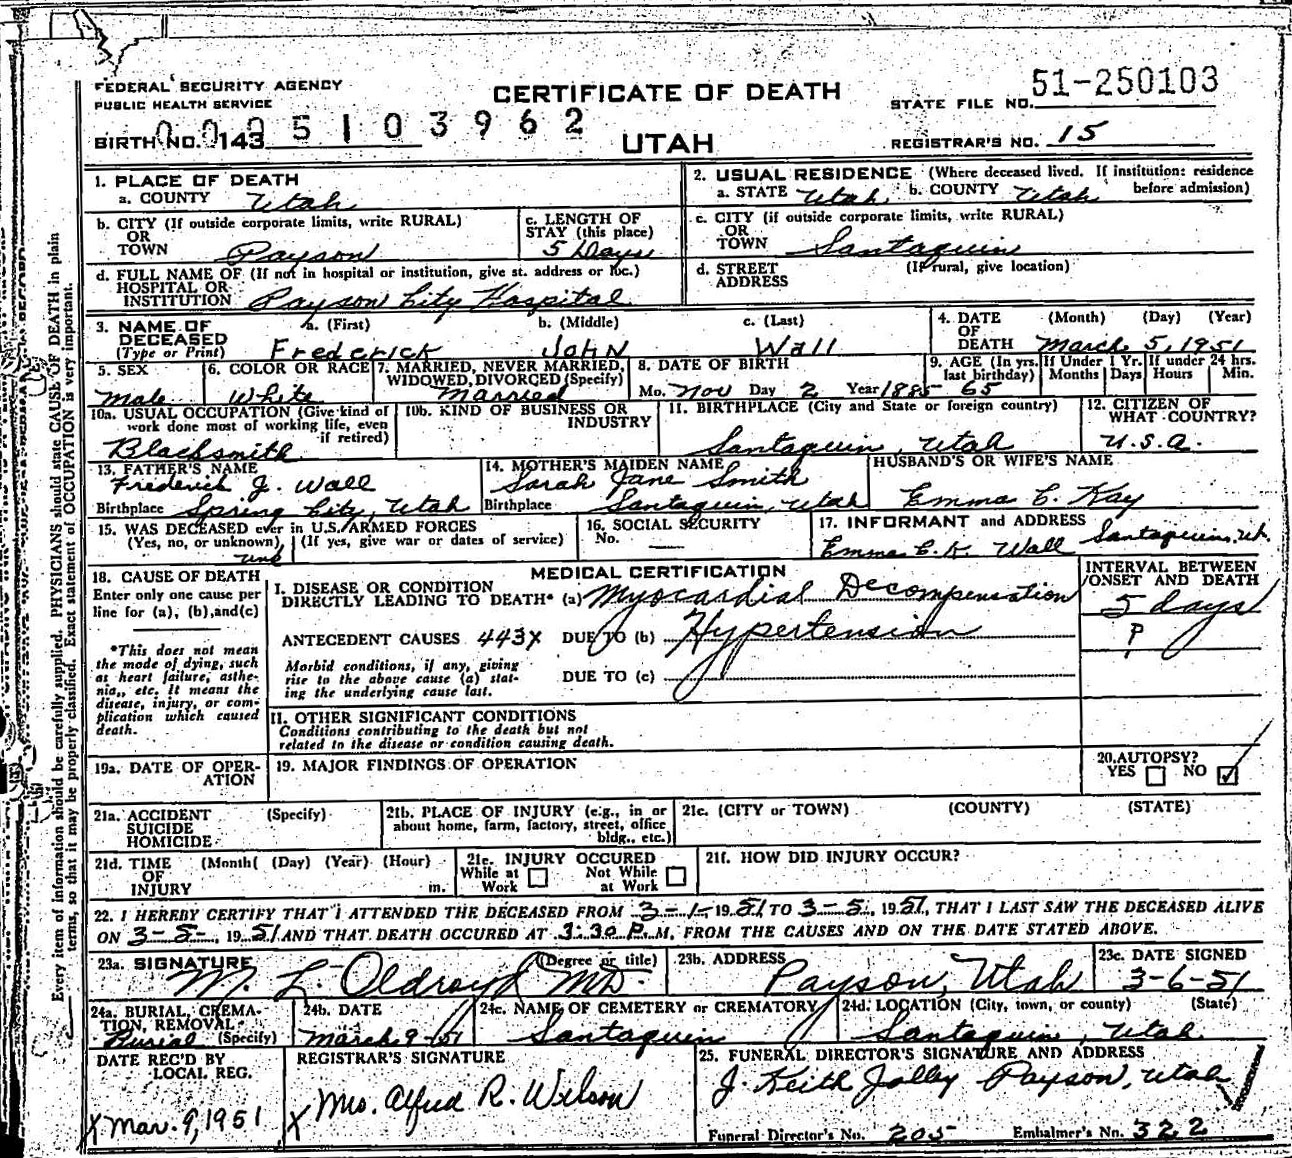 FEDERAL SECURITY AGENCY
PUBLIC HEALTH SERVICE
CERTIFICATE OF DEATH
STATE FILE NO. 51-250103
BIRTH NO. 143 0005103962
UTAH
REGISTRAR'S NO. 15
1. PLACE OF DEATH
a. COUNTY Utah
2. USUAL RESIDENCE (Where deceased lived. If institution: residence before admission)
a. STATE Utah b. COUNTY Utah
b. CITY (If outside corporate limits, write RURAL)
OR
TOWN Payson
c. LENGTH OF
STAY (this place)
5 Days
c. CITY (if outside corporate limits, write RURAL)
OR
TOWN Santaquin
d. FULL NAME OF (If not in hospital or institution, give st. address or loc.)
HOSPITAL OR
INSTITUTION Payson City Hospital
d. STREET (If rural, give location)
ADDRESS
3. NAME OF
DECEASED
(Type or Print)
a. (First) b. (Middle) c. (Last)
Frederick John Wall
4. DATE (Month) (Day) (Year)
OF
DEATH March 5, 1951
5. SEX
Male
6. COLOR OR RACE
White
7. MARRIED, NEVER MARRIED,
WIDOWED, DIVORCED (Specify)
Married
8. DATE OF BIRTH
Mo. Nov Day 2 Year 1885
9. AGE (In yrs. last birthday) 65
If Under 1 Yr. Months Days
If under 24 hrs. Hours Min.
10a. USUAL OCCUPATION (Give kind of
work done most of working life, even
if retired)
Blacksmith
10b. KIND OF BUSINESS OR
INDUSTRY
11. BIRTHPLACE (City and State or foreign country)
Santaquin, Utah
12. CITIZEN OF
WHAT COUNTRY?
U.S.A.
13. FATHER'S NAME
Frederick J. Wall
Birthplace Spring City, Utah
14. MOTHER'S MAIDEN NAME
Sarah Jane Smith
Birthplace Santaquin, Utah
HUSBAND'S OR WIFE'S NAME
Emma E. Kay
15. WAS DECEASED ever in U.S. ARMED FORCES
(Yes, no, or unknown) (If yes, give war or dates of service)
unk
16. SOCIAL SECURITY
No. —
17. INFORMANT and ADDRESS
Emma E. K. Wall Santaquin, Ut.
18. CAUSE OF DEATH
Enter only one cause per
line for (a), (b), and (c)
*This does not mean
the mode of dying, such
as heart failure, asthe-
nia, etc. It means the
disease, injury, or com-
plication which caused
death.
MEDICAL CERTIFICATION
INTERVAL BETWEEN
ONSET AND DEATH
I. DISEASE OR CONDITION
DIRECTLY LEADING TO DEATH* (a) Myocardial Decompensation 5 days
ANTECEDENT CAUSES 443X DUE TO (b) Hypertension ?
Morbid conditions, if any, giving
rise to the above cause (a) stat-
ing the underlying cause last.
DUE TO (c)
II. OTHER SIGNIFICANT CONDITIONS
Conditions contributing to the death but not
related to the disease or condition causing death.
19a. DATE OF OPER-
ATION
19. MAJOR FINDINGS OF OPERATION
20. AUTOPSY?
YES NO ✓
21a. ACCIDENT (Specify)
SUICIDE
HOMICIDE
21b. PLACE OF INJURY (e.g., in or
about home, farm, factory, street, office
bldg., etc.)
21c. (CITY or TOWN) (COUNTY) (STATE)
21d. TIME (Month( (Day) (Year) (Hour)
OF
INJURY m.
21e. INJURY OCCURED
While at Work Not While at Work
21f. HOW DID INJURY OCCUR?
22. I HEREBY CERTIFY THAT I ATTENDED THE DECEASED FROM 3-1-1951 TO 3-5, 1951, THAT I LAST SAW THE DECEASED ALIVE
ON 3-5-, 1951 AND THAT DEATH OCCURED AT 3:30 P.M. FROM THE CAUSES AND ON THE DATE STATED ABOVE.
23a. SIGNATURE (Degree or title)
M. L. Oldroyd MD.
23b. ADDRESS
Payson, Utah
23c. DATE SIGNED
3-6-51
24a. BURIAL, CREMA-
TION, REMOVAL
(Specify) Burial
24b. DATE
March 9-51
24c. NAME OF CEMETERY or CREMATORY
Santaquin
24d. LOCATION (City, town, or county) (State)
Santaquin, Utah
DATE REC'D BY
LOCAL REG.
X Mar. 9, 1951
REGISTRAR'S SIGNATURE
X Mrs. Alfred R. Wilson
25. FUNERAL DIRECTOR'S SIGNATURE AND ADDRESS
J. Keith Jolley Payson, Utah
Funeral Director's No. 205 Embalmer's No. 322
Every item of information should be carefully supplied. PHYSICIANS should state CAUSE OF DEATH in plain
terms, so that it may be properly classified. Exact statement of OCCUPATION is very important.